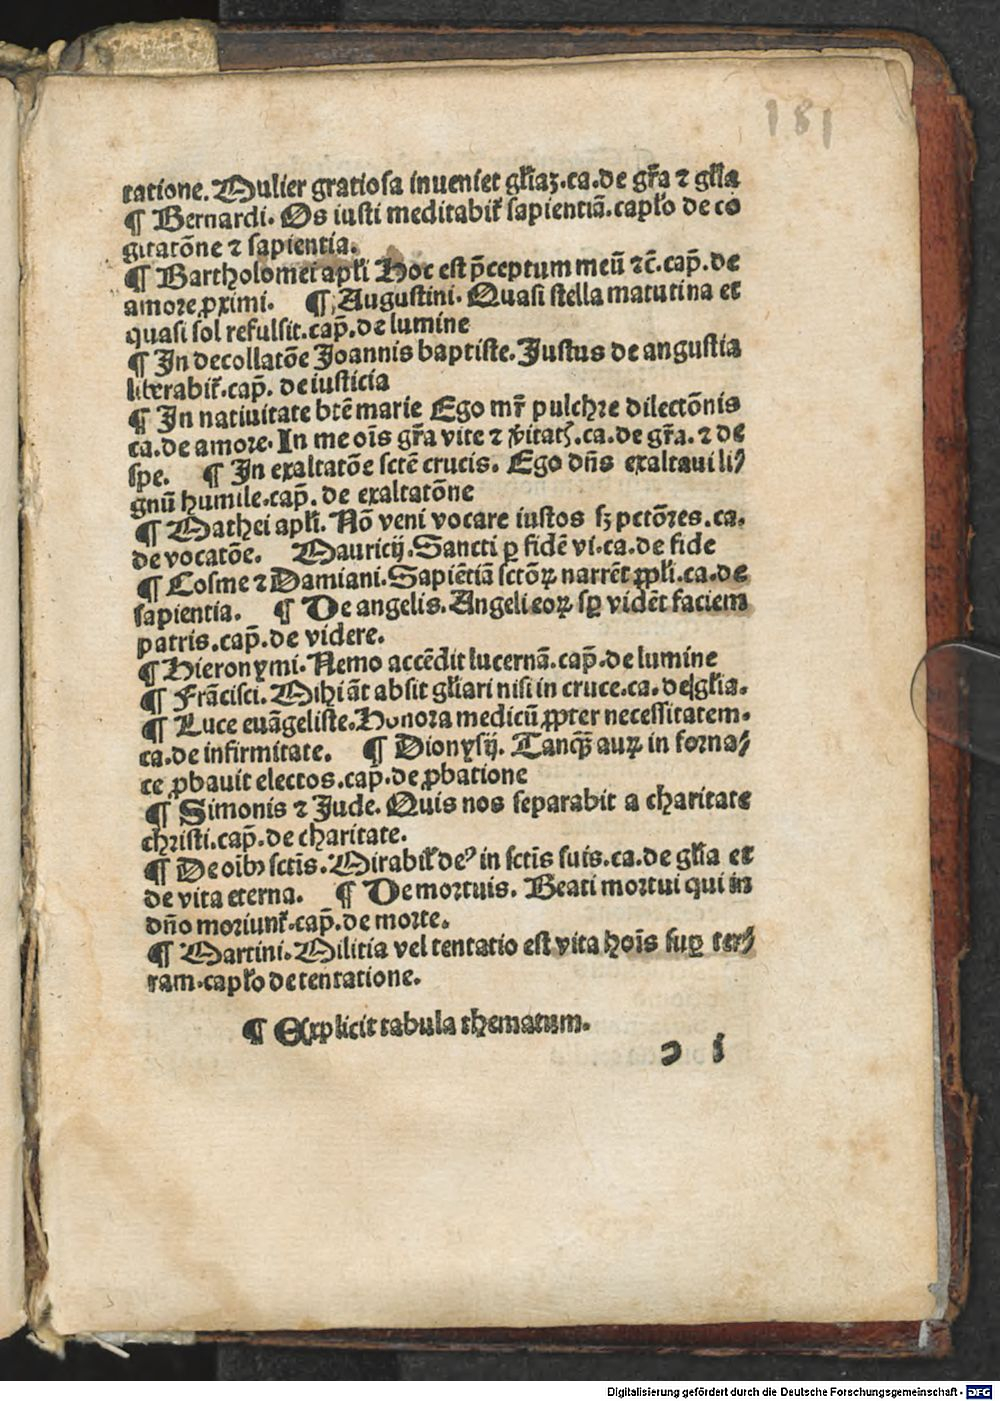 181
tatione. Mulier gratiosa inueniet gl'iaꝫ. ca. de gr̃a ⁊ gl'ia
¶ Bernardi. Os iusti meditabit᷑ sapientiã. capl'o de co
gitatõne ⁊ sapientia.
¶ Bartholomei apl'i Hoc est p̃ceptum meũ ⁊c̃. cap̃. de
amore ꝓximi. ¶ Augustini. Quasi stella matutina et
quasi sol refulsit. cap̃. de lumine
¶ In decollatõe Joannis baptiste. Justus de angustia
liberabit᷑. cap̃. de iusticia
¶ In natiuitate btẽ marie Ego mr̃ pulchre dilectõnis
ca. de amore. In me oĩs gr̃a vite ⁊ ꝟitatꝭ. ca. de gr̃a. ⁊ de
spe. ¶ In exaltatõe sctẽ crucis. Ego dñs exaltaui li⸗
gnũ humile. cap̃. de exaltatõne
¶ Mathei apl'i. Nõ veni vocare iustos sꝫ pctõres. ca.
de vocatõe. Mauricij. Sancti ꝑ fidẽ vi. ca. de fide
¶ Cosme ⁊ Damiani. Sapiẽtiã sctõꝝ narrẽt ꝓpl'i. ca. de
sapientia. ¶ De angelis. Angeli eoꝝ sꝑ vidẽt faciem
patris. cap̃. de videre.
¶ Hieronymi. Nemo accẽdit lucernã. cap̃. de lumine
¶ Frãcisci. Mihi ãt absit gl'iari nisi in cruce. ca. de gl'ia.
¶ Luce euãgeliste. Honora medicũ ꝓpter necessitatem.
ca. de infirmitate. ¶ Dionysij. Tanqꝫ auꝝ in forna⸗
ce ꝓbauit electos. cap̃. de ꝓbatione
¶ Simonis ⁊ Jude. Quis nos separabit a charitate
christi. cap̃. de charitate.
¶ De oĩbꝰ sctĩs. Mirabil' deꝰ in sctĩs suis. ca. de gl'ia et
de vita eterna. ¶ De mortuis. Beati mortui qui in
dño moriunt᷑. cap̃. de morte.
¶ Martini. Militia vel tentatio est vita hoĩs suꝑ ter⸗
ram. capl'o de tentatione.
¶ Explicit tabula thematum.
ɔ i
Digitalisierung gefördert durch die Deutsche Forschungsgemeinschaft - DFG